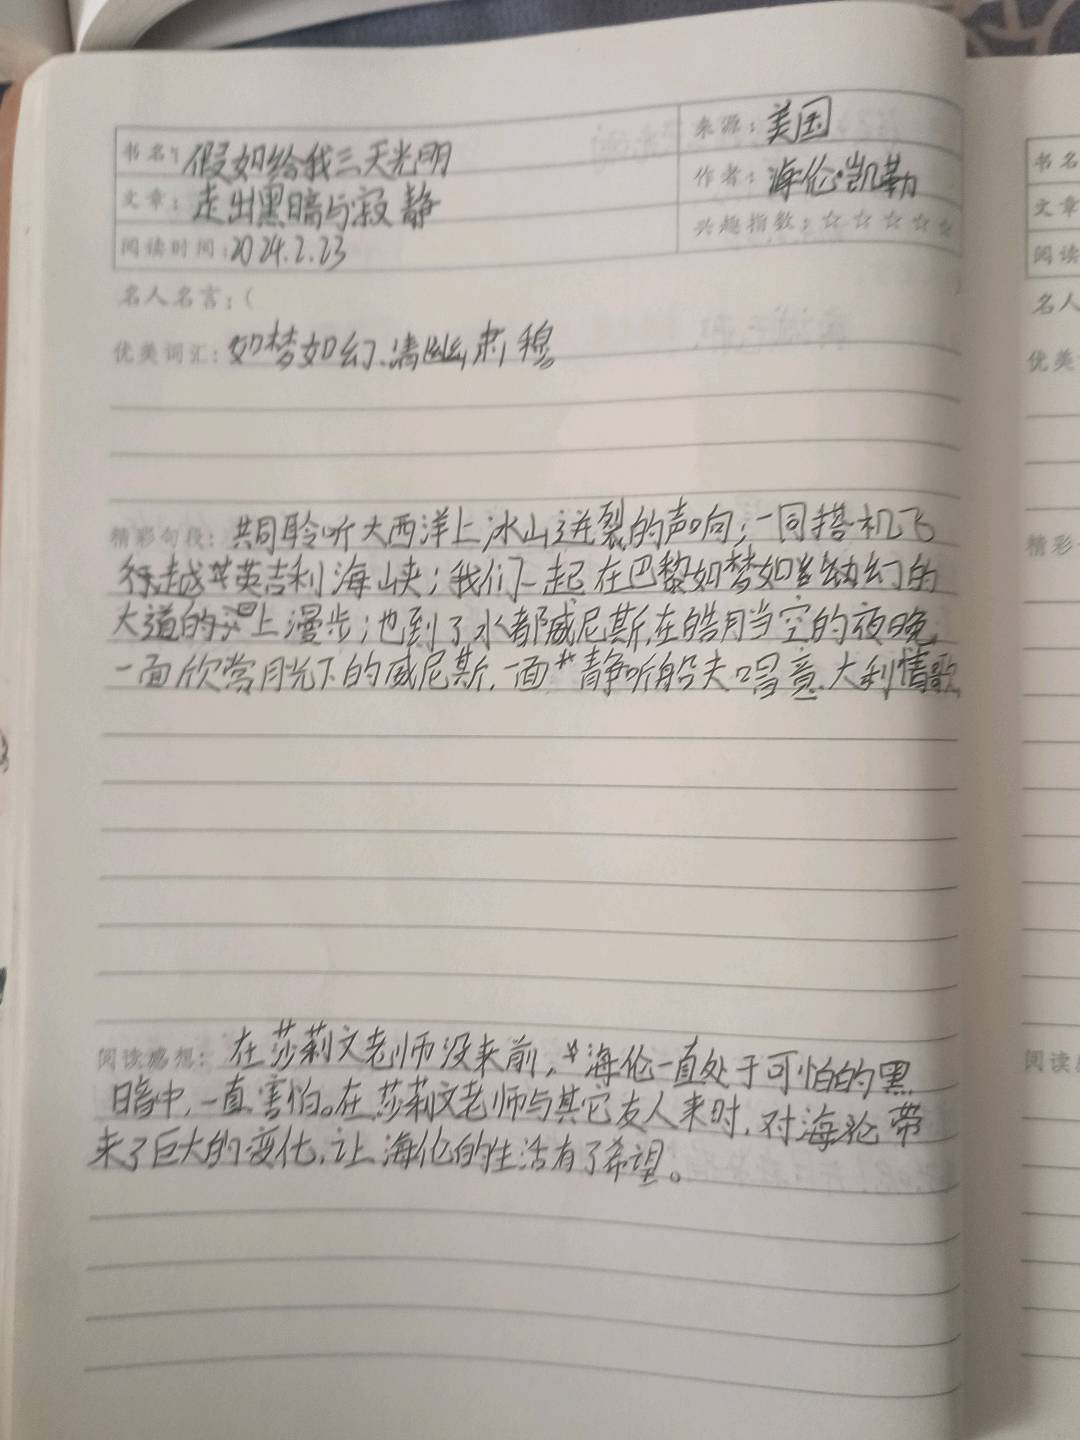 书名：假如给我三天光明
来源：美国
文章：走出黑暗与寂静
作者：海伦·凯勒
阅读时间：2024.2.23
兴趣指数：☆☆☆☆☆
名人名言：(
优美词汇：如梦如幻、清幽、肃穆。
精彩句段：共同聆听大西洋上冰山迸裂的声响；一同搭机飞
行越英吉利海峡；我们一起在巴黎如梦如幻的
大道的上漫步；也到了水都威尼斯，在皓月当空的夜晚，
一面欣赏月光下的威尼斯，一面静听船夫唱意大利情歌
阅读感想：在莎莉文老师没来前，海伦一直处于可怕的黑
暗中，一直害怕。在莎莉文老师与其它友人来时，对海伦带
来了巨大的变化，让海伦的生活有了希望。
书名
文章
阅读
名人
优美
精彩
阅读